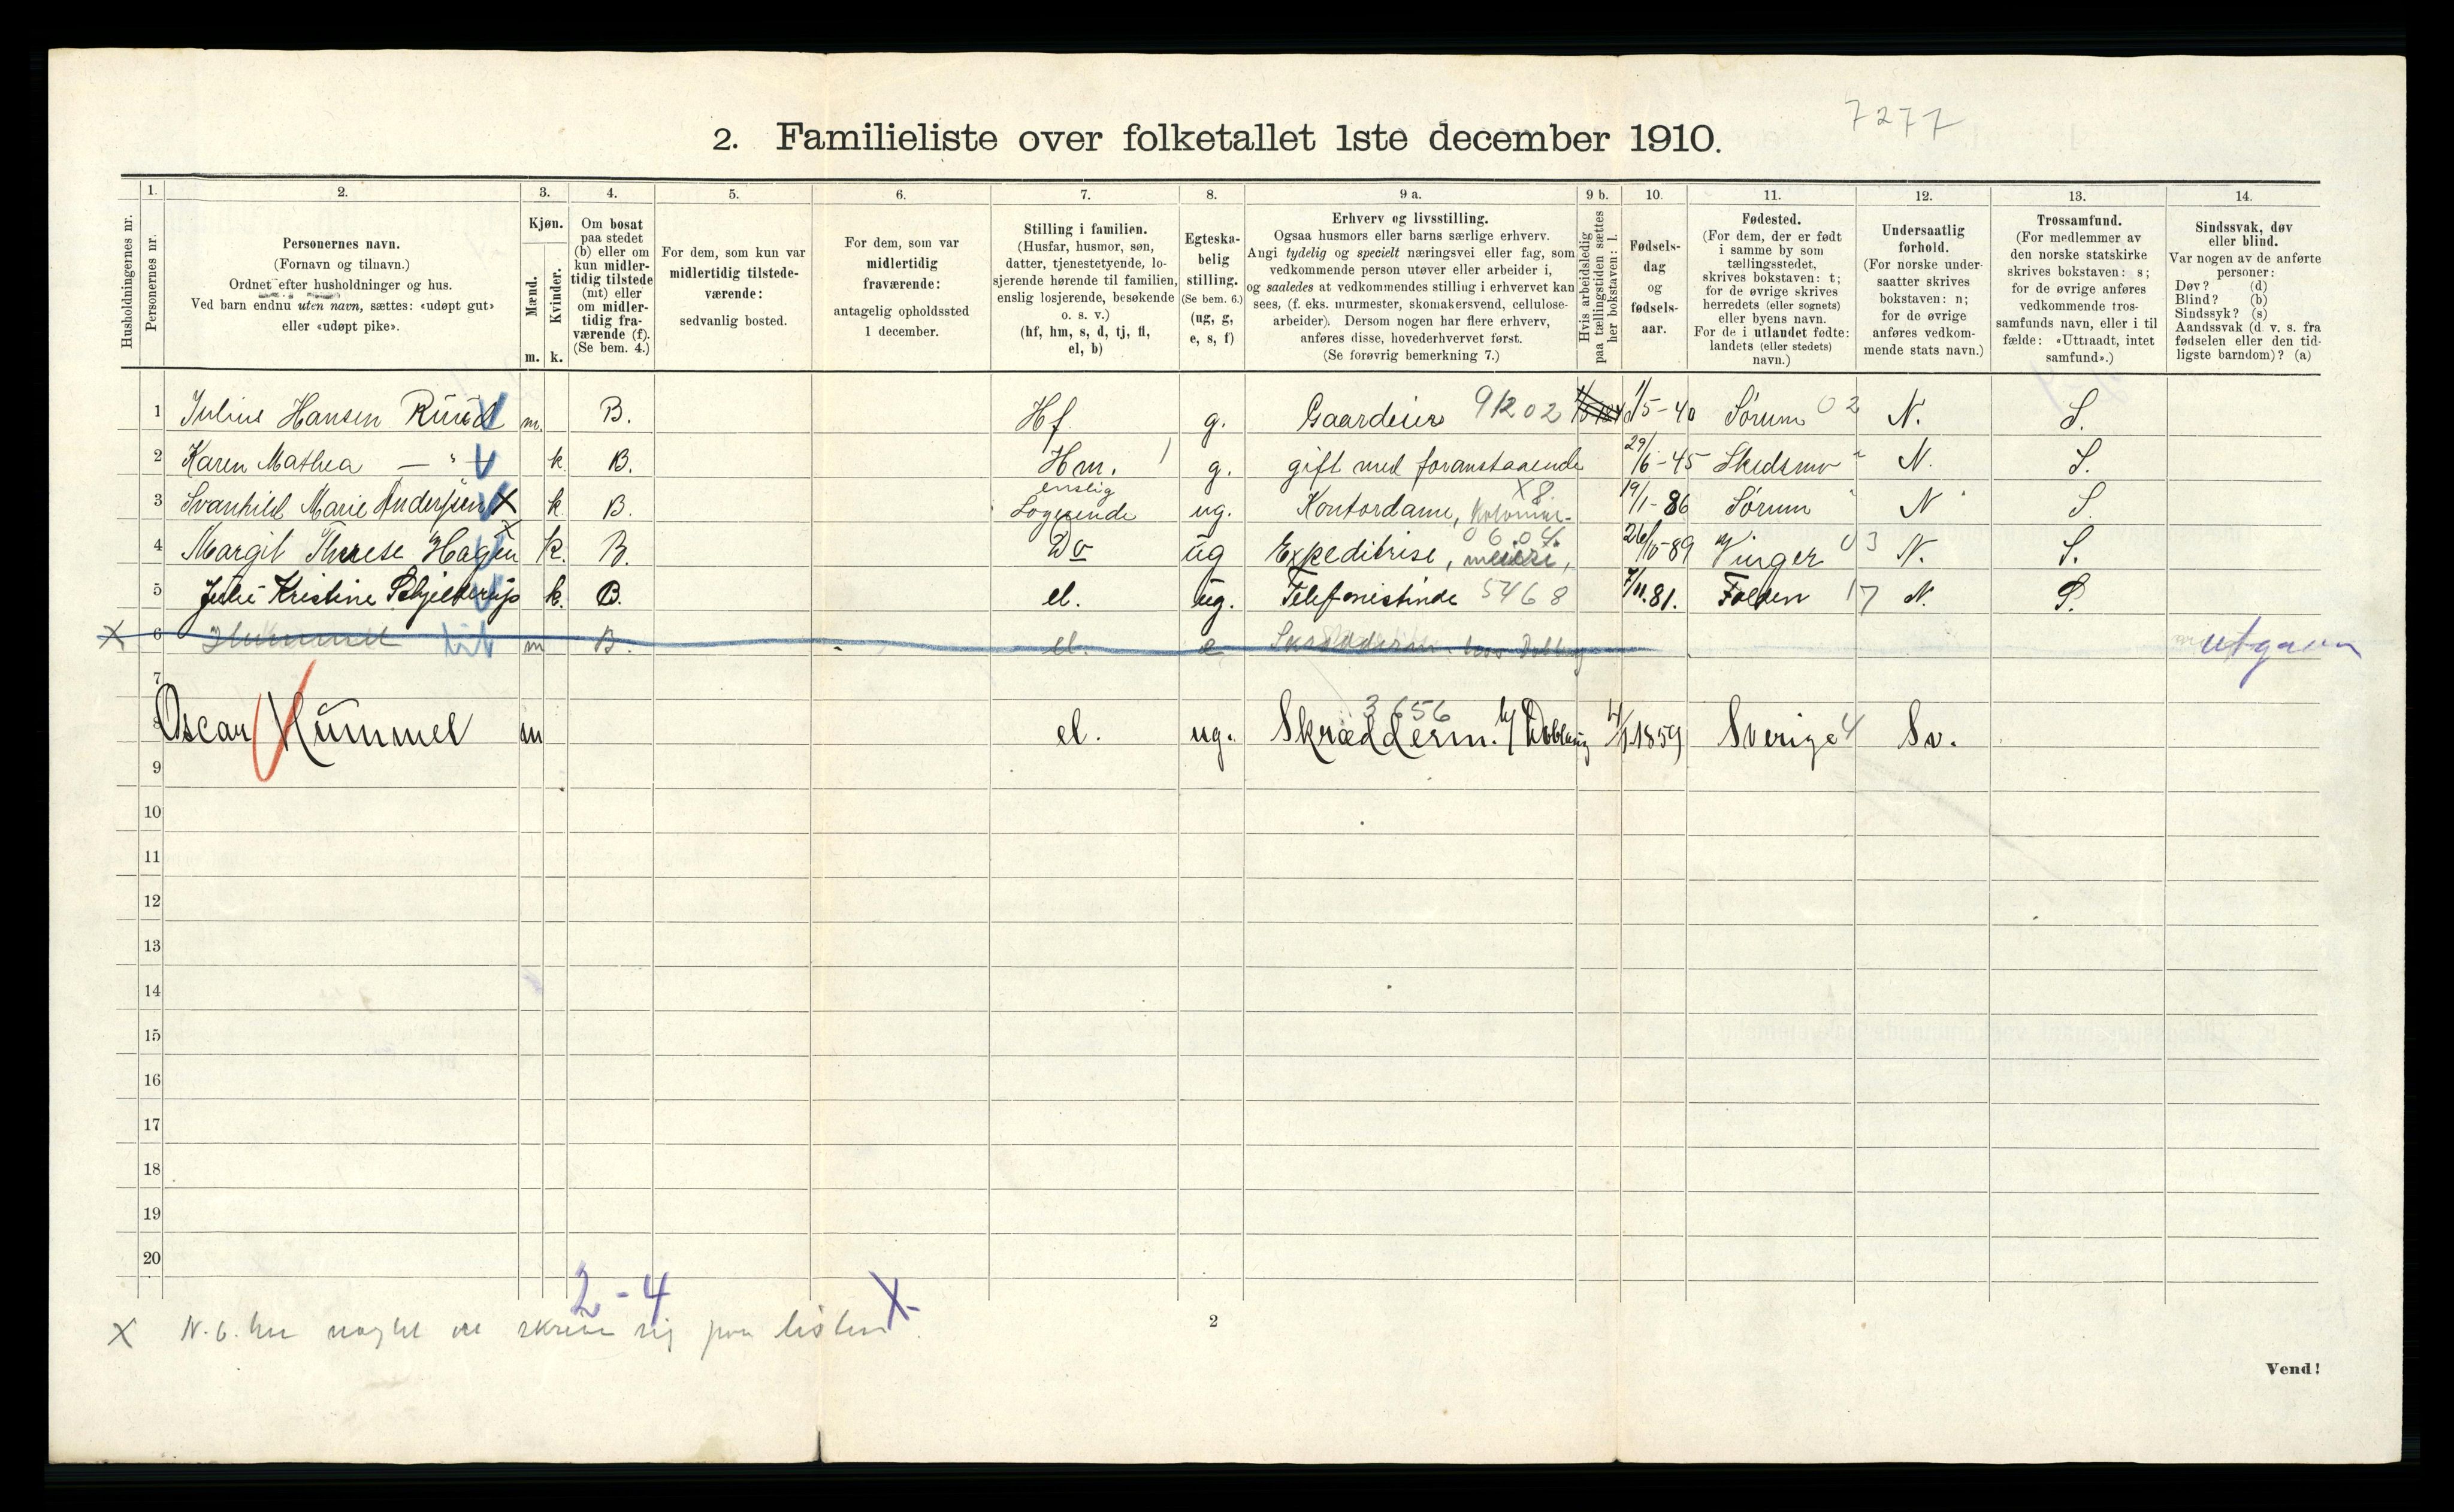 7277
2. Familieliste over folketallet 1ste december 1910.
1. 2. 3. 4. 5. 6. 7. 8. 9 a. 9 b. 10. 11. 12. 13. 14.
Husholdningernes nr.
Personernes nr.
Personernes navn.
(Fornavn og tilnavn.)
Ordnet efter husholdninger og hus.
Ved barn endnu uten navn, sættes: «udøpt gut»
eller «udøpt pike».
Kjøn.
Mænd.
Kvinder.
m. k.
Om bosat
paa stedet
(b) eller om
kun midler-
tidig tilstede
(mt) eller
om midler-
tidig fra-
værende (f).
(Se bem. 4.)
For dem, som kun var
midlertidig tilstede-
værende:
sedvanlig bosted.
For dem, som var
midlertidig
fraværende:
antagelig opholdssted
1 december.
Stilling i familien.
(Husfar, husmor, søn,
datter, tjenestetyende, lo-
sjerende hørende til familien,
enslig losjerende, besøkende
o. s. v.)
(hf, hm, s, d, tj, fl,
el, b)
Egteska-
belig
stilling.
(Se bem. 6.)
(ug, g,
e, s, f)
Erhverv og livsstilling.
Ogsaa husmors eller barns særlige erhverv.
Angi tydelig og specielt næringsvei eller fag, som
vedkommende person utøver eller arbeider i,
og saaledes at vedkommendes stilling i erhvervet kan
sees, (f. eks. murmester, skomakersvend, cellulose-
arbeider). Dersom nogen har flere erhverv,
anføres disse, hovederhvervet først.
(Se forøvrig bemerkning 7.)
Hvis arbeidsledig
paa tællingstiden sættes
her bokstaven: l.
Fødsels-
dag
og
fødsels-
aar.
Fødested.
(For dem, der er født
i samme by som
tællingsstedet,
skrives bokstaven: t;
for de øvrige skrives
herredets (eller sognets)
eller byens navn.
For de i utlandet fødte:
landets (eller stedets)
navn.)
Undersaatlig
forhold.
(For norske under-
saatter skrives
bokstaven: n;
for de øvrige
anføres vedkom-
mende stats navn.)
Trossamfund.
(For medlemmer av
den norske statskirke
skrives bokstaven: s;
for de øvrige anføres
vedkommende tros-
samfunds navn, eller i til-
fælde: «Uttraadt, intet
samfund».)
Sindssvak, døv
eller blind.
Var nogen av de anførte
personer:
Døv? (d)
Blind? (b)
Sindssyk? (s)
Aandssvak (d. v. s. fra
fødselen eller den tid-
ligste barndom)? (a)
1 Julius Hansen Ruud m. B. Hf. g. Gaardeier 91202 1/5-40 Sørum 02 N. S.
2 Karen Mathea — " — k B. Hm. 1 g. gift med foranstaaende 29/6-45 Skedsmo " N. S.
3 Svanhild Marie Andersen X k B. enslig Logerende ug. Kontordame, X8. 19/1-86 Sørum " N S.
4 Margit Therese Hagen X k. B. Do ug Expeditrise, meieri, 0604 26/10-89 Vinger 03 N. S.
5 Julie Kristine Schjelderup k. B. el. ug. Telefonistinde 5468 7/11.81. Folden 17 N. S.
X 6 Hummel m B. el. e utgaar
7
8 Oscar Hümmel m el. ug. Skrædderm. 3656 1859 Sverige 4 Sv.
9
10
11
12
13
14
15
16
17
18
19
20
2-4 X-
X N. 6. har negtet at skrive sig paa listen.
2
Vend!